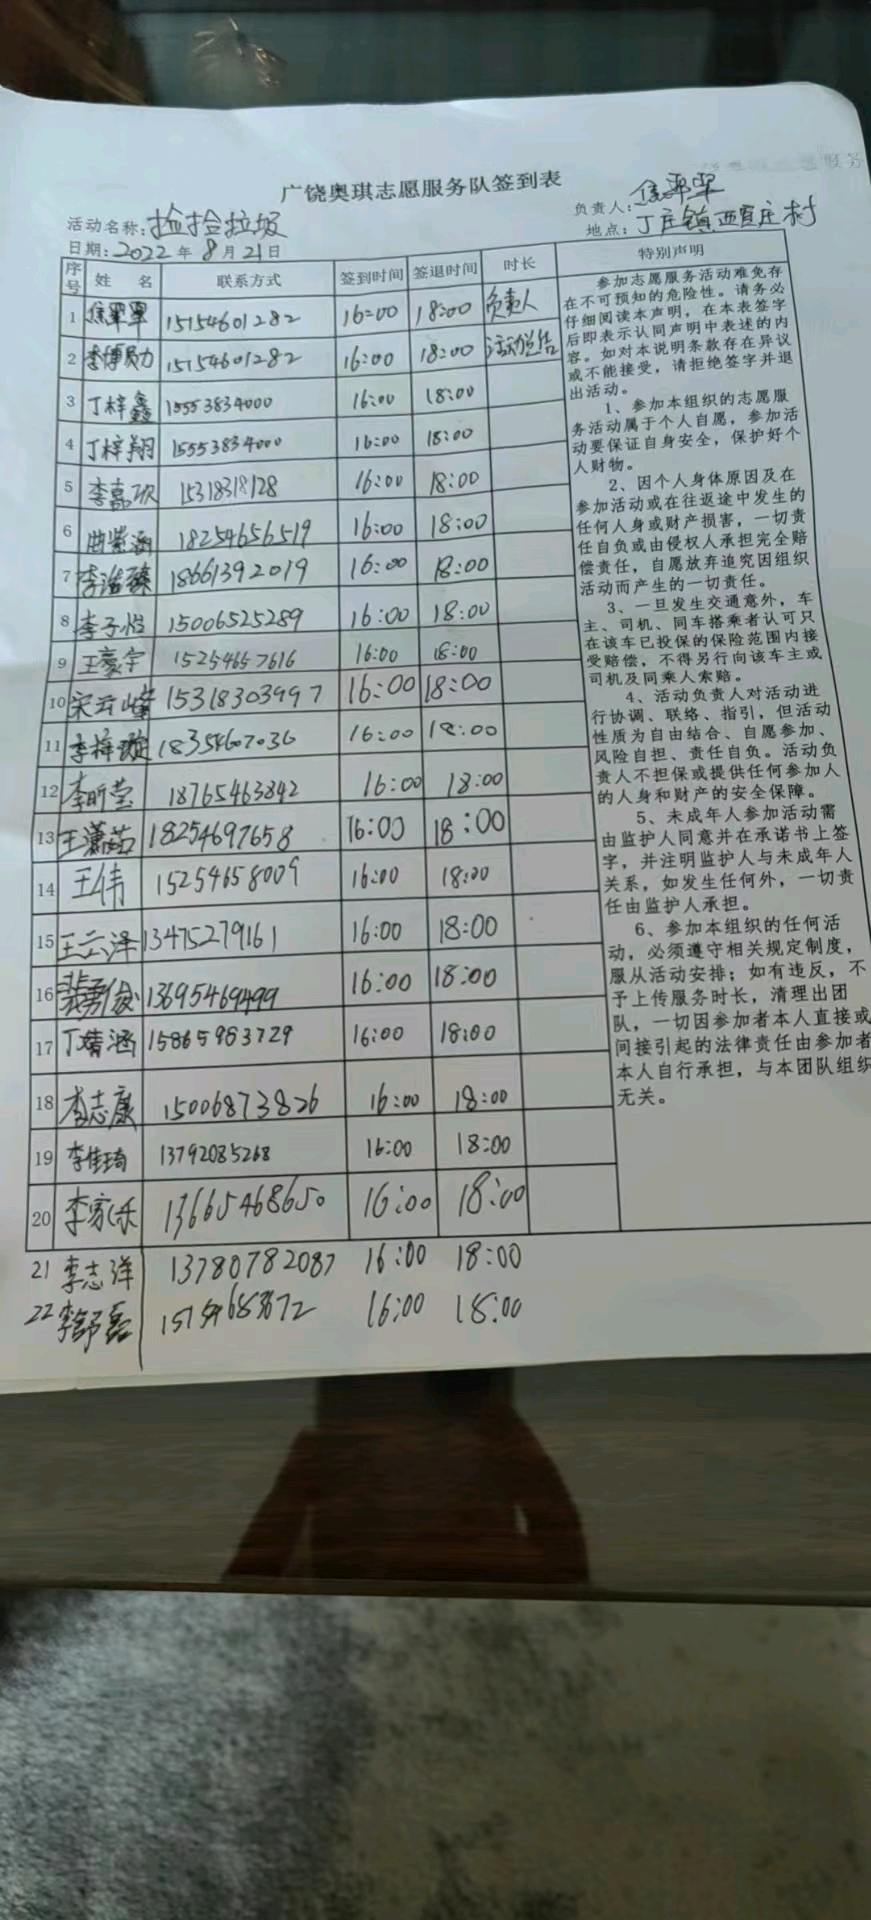 广饶奥琪志愿服务队签到表
活动名称：捡拾垃圾
负责人：
日期：2022年8月21日
地点：丁庄镇西夏庄村
序号 姓名 联系方式 签到时间 签退时间 时长 特别声明
1 15154601282 16:00 18:00 负责人
2 李博 15154601282 16:00 18:00 活动总结
3 丁梓鑫 15553834000 16:00 18:00
4 丁梓翔 15553834000 16:00 18:00
5 李嘉欣 15318318128 16:00 18:00
6 紫涵 18254656519 16:00 18:00
7 李浩臻 18661392019 16:00 18:00
8 李子怡 15006525289 16:00 18:00
9 王豪宇 15254657616 16:00 18:00
10 宋云峰 15318303997 16:00 18:00
11 李梓璇 18354607036 16:00 18:00
12 李昕莹 18765463842 16:00 18:00
13 王潇茹 18254697658 16:00 18:00
14 王伟 15254658009 16:00 18:00
15 王云泽 13475279161 16:00 18:00
16 13695469499 16:00 18:00
17 丁清涵 15865983729 16:00 18:00
18 李志康 15006873826 16:00 18:00
19 李佳琦 13792085268 16:00 18:00
20 李家乐 13665468650 16:00 18:00
21 李志洋 13780782087 16:00 18:00
22 李舒磊 16:00 18:00
参加志愿服务活动难免存
在不可预知的危险性。请务必
仔细阅读本声明，在本表签字
后即表示认同声明中表述的内
容。如对本说明条款存在异议
或不能接受，请拒绝签字并退
出活动。
1、参加本组织的志愿服
务活动属于个人自愿，参加活
动要保证自身安全，保护好个
人财物。
2、因个人身体原因及在
参加活动或在往返途中发生的
任何人身或财产损害，一切责
任自负或由侵权人承担完全赔
偿责任，自愿放弃追究因组织
活动而产生的一切责任。
3、一旦发生交通意外，车
主、司机、同车搭乘者认可只
在该车已投保的保险范围内接
受赔偿，不得另行向该车主或
司机及同乘人索赔。
4、活动负责人对活动进
行协调、联络、指引，但活动
性质为自由结合、自愿参加、
风险自担、责任自负。活动负
责人不担保或提供任何参加人
的人身和财产的安全保障。
5、未成年人参加活动需
由监护人同意并在承诺书上签
字，并注明监护人与未成年人
关系，如发生任何外，一切责
任由监护人承担。
6、参加本组织的任何活
动，必须遵守相关规定制度，
服从活动安排；如有违反，不
予上传服务时长，清理出团
队，一切因参加者本人直接或
间接引起的法律责任由参加者
本人自行承担，与本团队组织
无关。